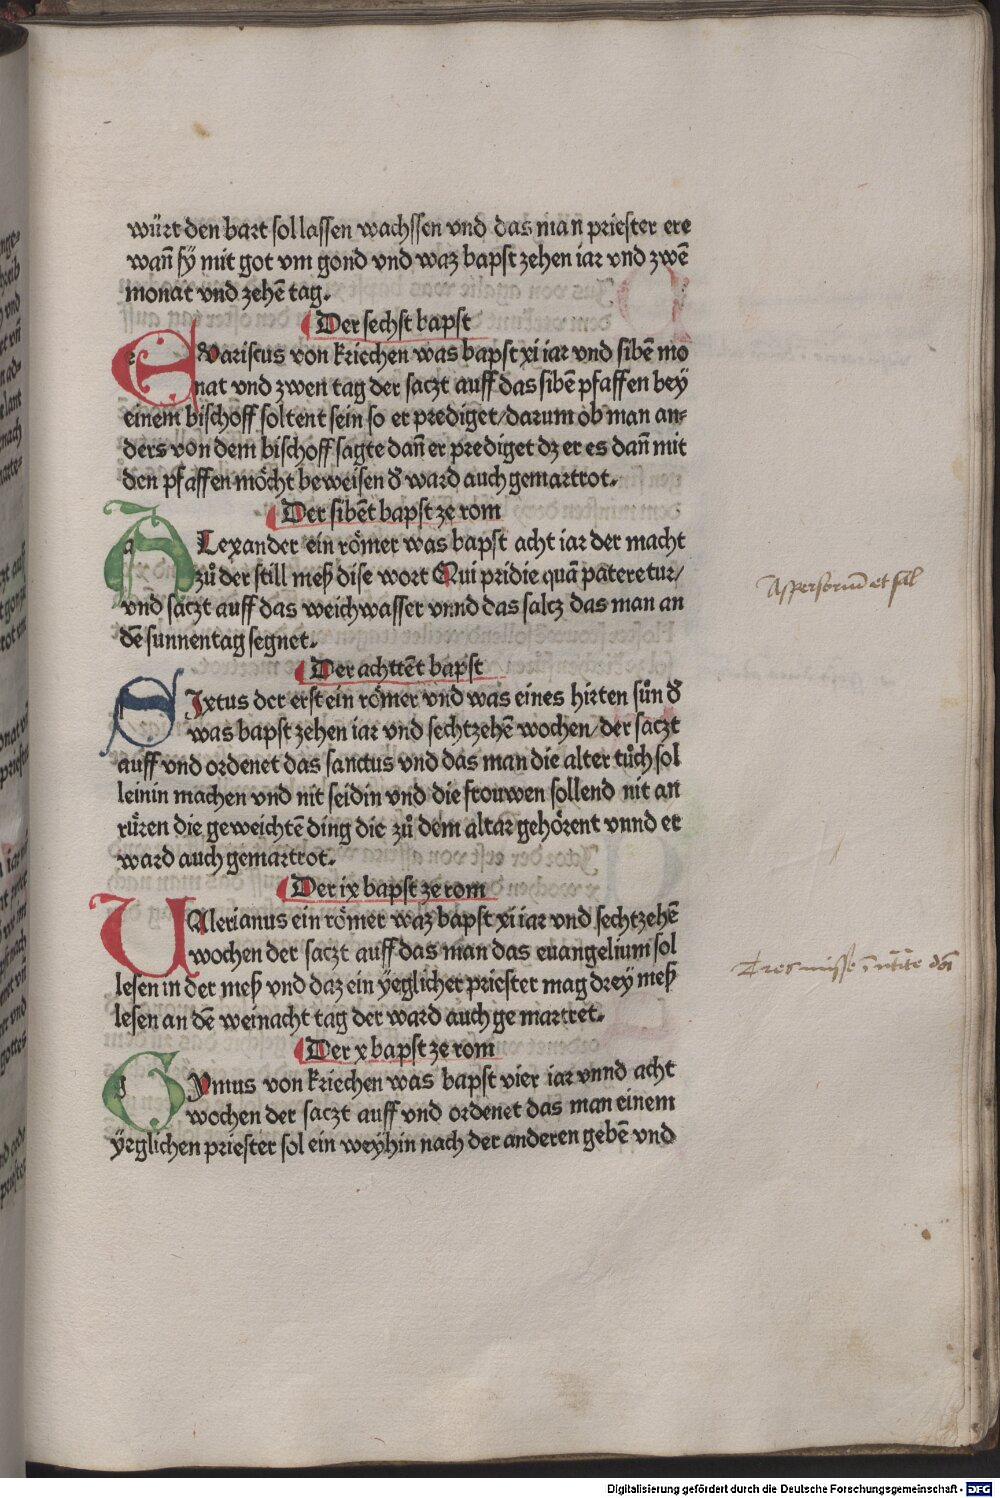 würt den bart sol lassen wachssen vnd das man priester ere
wañ sy̋ mit got vm gond vnd waz bapst zehen iar vnd zwē
monat vnd zehē tag.
Der sechst bapst
EVariscus von kriechen was bapst xi iar vnd sibē mo
nat vnd zwen tag der saczt auff das sibē pfaffen bey̋
einem bischoff soltent sein so er prediget/darum ob man an-
ders von dem bischoff sagte dañ er prediget dz er es dañ mit
den pfaffen moͤcht beweisen đ ward auch gemartrot.
Der sibēt bapst ze rom
ALexander ein roͤmer was bapst acht iar der macht
zuͦ der still meß dise wort Qui pridie quā pateretur/
vnd saczt auff das weichwasser vnnd das saltz das man an
dē sunnentag segnet.
Der achttēt bapst
SIxtus der erst ein roͤmer vnd was eines hirten suͦn đ
was bapst zehen iar vnd sechtzehē wochen/der saczt
auff vnd ordenet das sanctus vnd das man die alter tuͦch sol
leinin machen vnd nit seidin vnd die frouwen sollend nit an
ruͤren die geweichtē ding die zuͦ dem altar gehoͤrent vnnd er
ward auch gemartrot.
Der ix bapst ze rom
VAlerianus ein roͤmer waz bapst xi iar vnd sechtzehē
wochen der saczt auff das man das euangelium sol
lesen in der meß vnd daz ein y̋eglicher priester mag drey meß
lesen an dē weinacht tag der ward auch ge martret.
Der x bapst ze rom
GYmus von kriechen was bapst vier iar vnnd acht
wochen der saczt auff vnd ordenet das man einem
y̋rglichen priester sol ein wey̋hin nach der anderen gebē vnd
Aspersoriū et sal
Tres misse
Digitalisierung gefördert durch die Deutsche Forschungsgemeinschaft - DFG